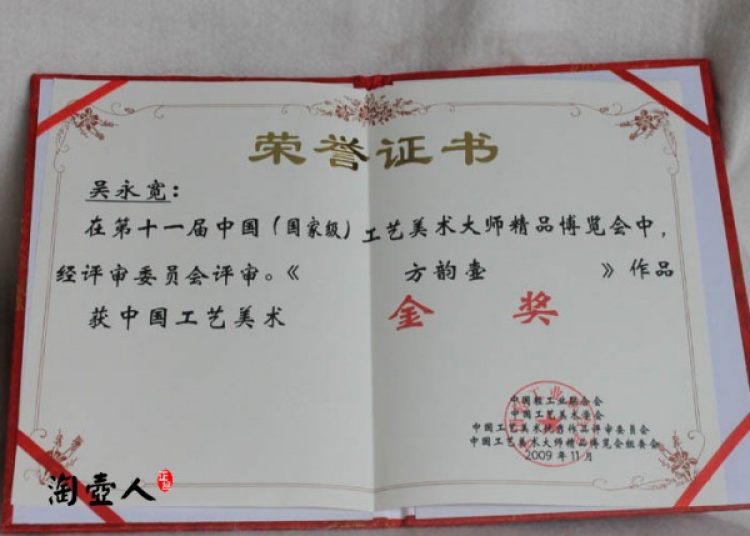 荣誉证书
吴永宽：
在第十一届中国(国家级)工艺美术大师精品博览会中，
经评审委员会评审。《 方韵壶 》作品
获中国工艺美术 金奖
中国轻工业联合会
中国工艺美术学会
中国工艺美术优秀作品评审委员会
中国工艺美术大师精品博览会组委会
2009年11月
淘壶人